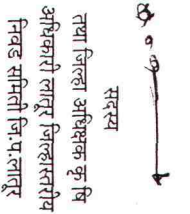 सदस्य
तथा जिल्हा अधिक्षक कृषि
अधिकारी लातूर जिल्हास्तरीय
निवड समिती जि.प.लातूर